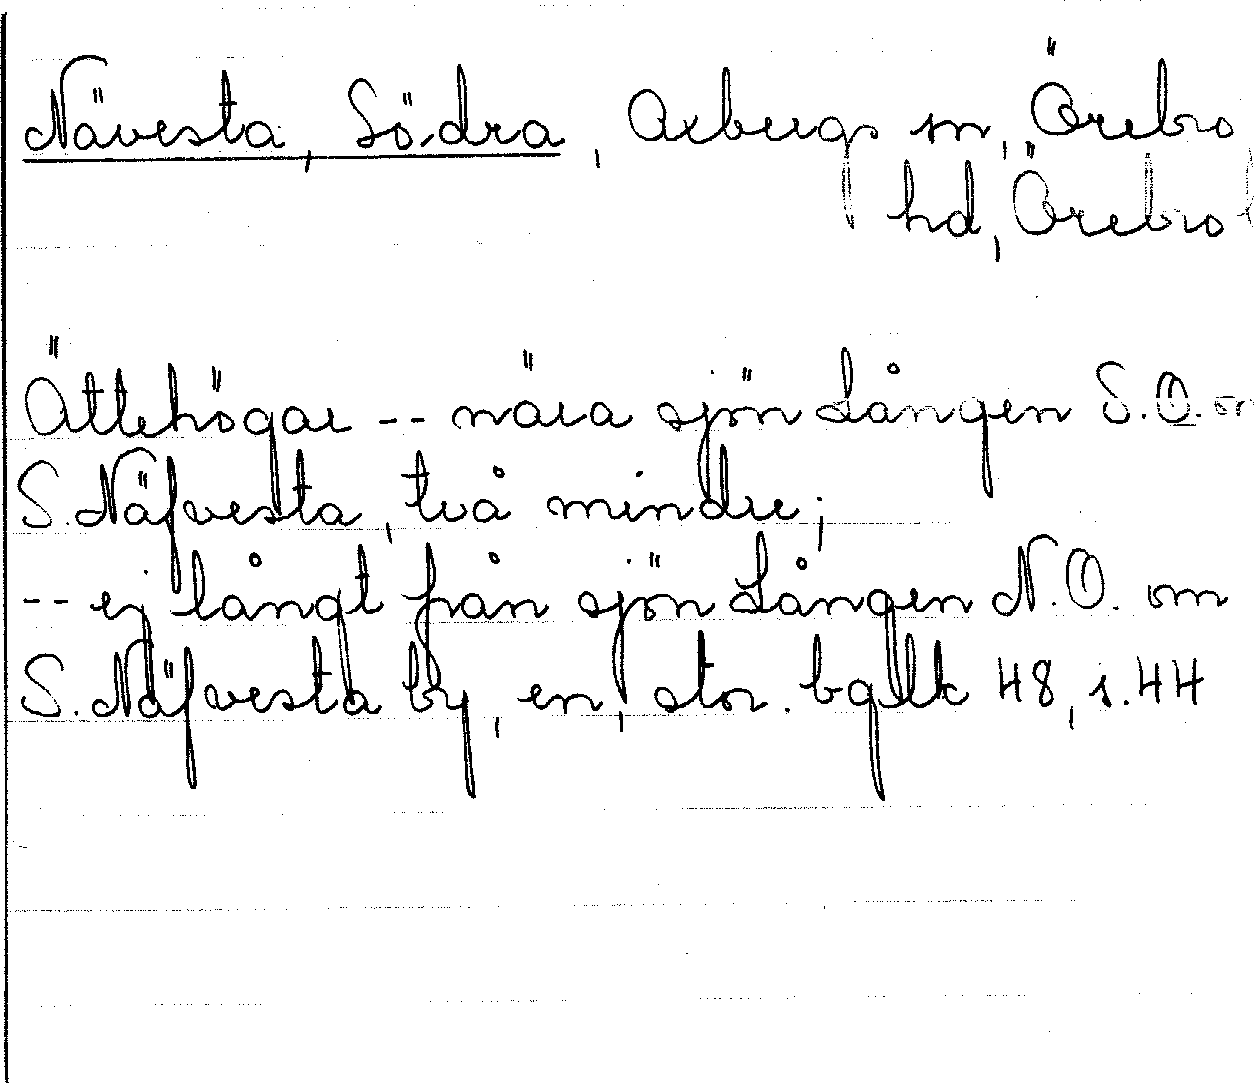 Nävesta, Södra, Axbergs sn, Örebro
hd, Örebro l
Ättehögar -- nära sjön Lången S.O. om
S. Näfvesta, två mindre;
-- ej långt från sjön Lången N.O. om
S. Näfvesta by, en, stor. bgllk 48, s. 44